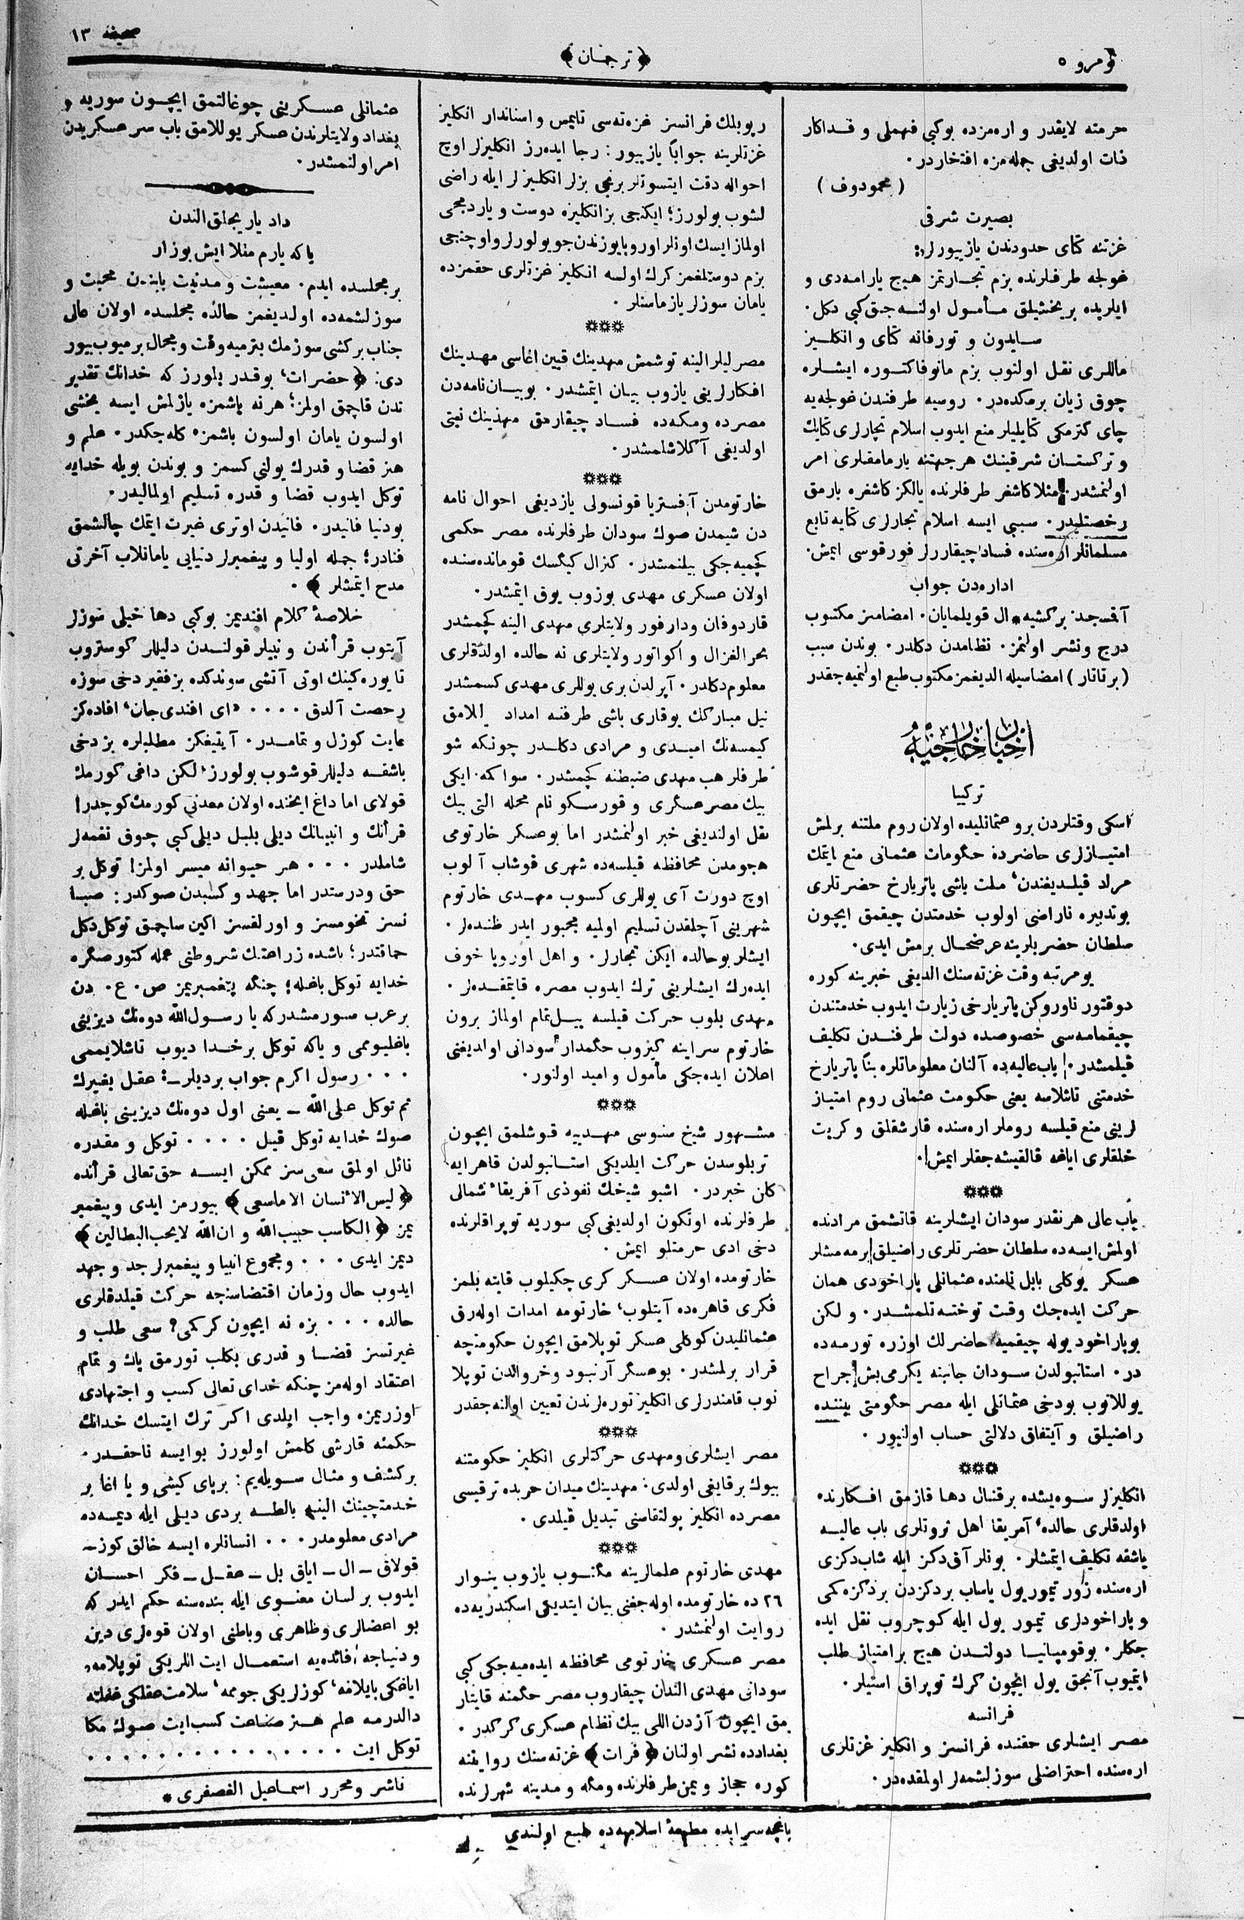 نومرو ٥
﴿ ترجمان ﴾
صحیفه ١٣
حرمته لایقدر و اره‌مزده بوكبی فهملی و فداكار
ذات اولدیغی جمله‌مزه افتخاردر.
( محمودوف )
بصیرت شرقی
غزتنه كتای حدودندن یازییورلر:
غولجه طرفلرنده بزم تجارتمز هیچ یارامه‌دی و
ایلریده بریخشیلق مأمول اولنه‌جق كبی دكل.
سایدون و تورفانه كتای و انكلیز
ماللری نقل اولنوب بزم مانوفاكتوره ایشلره
چوق زیان برمكده‌در. روسیه طرفندن غولجه‌یه
چای كترمكی كتایلیلر منع ایدوب اسلام تجارلری كتایك
و تركستان شرقینك هرجهتنه یارمامقلری امر
اولنمشدر. مثلا كاشغر طرفلرنده یالكز كاشغره بارمق
رخصتلیدر. سببی ایسه اسلام تجارلری كتایه تابع
مسلمانلر اره‌سنده فساد چیقاررلر فورقوسی ایمش.
اداره‌دن جواب
آقسجد: بركشیه * ال قویلمایان. امضامیز مكتوب
درج و نشر اولنمز. نظامدن دكلدر. بوندن سبب
( برتاتار ) امضاسیله الدیغمز مكتوب طبع اولنمیه‌جقدر
اخبار خارجیه
تركیا
اسكی وقتلردن برو عثمانلیده اولان روم ملتنه برلمش
امتیازلری حاضرده حكومات عثمانی منع ایتمك
مراد قیلدیغندن، ملت باشی پاتریارخ حضرتلری
بوتدبیره ناراضی اولوب خدمتدن چیقمق ایچون
سلطان حضرتلرینه عرضحال برمش ایدی.
بو مرتبه وقت غزته‌سنك الدیغی خبرینه كوره
دوقتور ناوروكن پاتریارخی زیارت ایدوب خدمتندن
چیقمامه‌سی خصوصده دولت طرفندن تكلیف
قیلمشدر. باب عالیه‌ده آلنان معلوماتلره بناً پاتریارخ
خدمتنی تاشلاسه یعنی حكومت عثمانی روم امتیاز
لرینی منع قیلسه روملر اره‌سنده قارشقلق و كریت
خلقلری ایاغه قالقیشه‌جقلر ایمش.
***
باب عالی هرنقدر سودان ایشلرینه قاتشمق مرادنده
اولمش ایسه‌ده سلطان حضرتلری راضیلق برمه‌مشلر
عسكر یوكلی بابل نامنده عثمانلی پاراخودی همان
حركت ایده‌جك وقت توختنه‌تلمشدر. و لكن
بو پاراخود یوله چیقمیه حاضرلك اوزره تورمه‌ده
در. استانبولدن سودان جانبنه یكرمی‌بش جراح
یوللانوب بودخی عثمانلی ایله مصر حكومتی بیننده
راضیلق و آیتفاق دلالتی حساب اولنیور.
***
انكلیزلر سویشده برقنال دها قازمق افكارنده
اولدقلری حالده، آمریقا اهل ثروتلری باب عالیه
باشقه تكلیف ایتمشلر. بونلر آق‌دكز ایله شاب‌دكزی
اره‌سنده زور تیموریول یاساب بردكزدن بردكزه كمی
و پاراخودلری تیمور یول ایله كوچروب نقل ایده
جكلر. بوقومپانیا دولتدن هیچ برامتیاز طلب
ایتمیوب آنجق یول ایچون كرك توپراق استیلر.
فرانسه
مصر ایشلری حقنده فرانسز و انكلیز غزتلری
اره‌سنده احتراضلی سوزلشمه‌لر اولمقده‌در.
رپوبلك فرانسز غزته‌سی تایمس و استاندار انكلیز
غزتلرینه جواباً یازییور: رجا ایده‌رز انكلیزلر اوچ
احواله دقت ایتسونلر برنجی بزلر انكلیزلر ایله راضی
لشوب بولورز؛ ایكنجی بزانكلیزه دوست و یاردمجی
اولمازایسك اونلر اوروپا یوزندن جویولورلر و اوچنجی
بزم دوستلغمز كرك اولسه انكلیز غزتلری حقمزده
یامان سوزلر یازماسنلر.
***
مصرلیلر الینه توشمش مهدینك قیین اغاسی مهدینك
افكارلرینی یازوب بیان ایتمشدر. بوبیان نامه‌دن
مصرده ومكه‌ده فساد چیقارمق مهدینك نیتی
اولدیغی آكلاشلمشدر.
***
خارتومدن آفستریا قونسولی یازدیغی احوال نامه
دن شیمدن صوك سودان طرفلرنده مصر حكمی
كچمیه‌جكی بیلنمشدر. كنزال كیكسك قومانده‌سنده
اولان عسكری مهدی بوزوب یوق ایتمشدر.
قاردوفان ودارفور ولایتلری مهدی الینه كچمشدر
بحر الغزال و اكواتور ولایتلری نه حالده اولدقلری
معلوم دكلدر. آیرلدن بری یوللری مهدی كسمشدر
نیل مبارك یوقاری باشی طرفنه امداد یللامق
كیمسه‌نك امیدی و مرادی دكلدر چونكه شو
طرفلر هب مهدی ضبطنه كچمشدر. سواكمه. ایكی
بیك مصر عسكری و قورسكو نام محله التی بیك
نقل اولندیغی خبر اولنمشدر اما بوعسكر خارتومی
هجومدن محافظه قیلسه‌ده شهری قوشاب آلوب
اوچ دورت آی یوللری كسوب مهدی خارتوم
شهرینی آچلقدن تسلیم اولمیه مجبور ایدر ظنده‌لر.
ایشلر بوحالده ایكن تجارلر. و اهل اوروپا خوف
ایده‌رك ایشلرینی ترك ایدوب مصره قایتقده‌لر.
مهدی بلوب حركت قیلسه ییل تمام اولماز برون
خارتوم سراینه كیزوب حكمدار سودانی اولدیغنی
اعلان ایده‌جكی مأمول و امید اولنور.
***
مشهور شیخ سنوسی مهدیه قوشلمق ایچون
تربلوسدن حركت ایلدیكی استانبولدن قاهرایه
كلن خبردر. اشبو شیخك نفوذی آفریقا شمالی
طرفلرنده اونكون اولدیغی كبی سوریه توپراقلرنده
دخی ادی حرمتلو ایمش.
خارتومده اولان عسكر كری چكیلوب قایته بلمز
فكری قاهره‌ده آیتلوب، خارتومه امدات اوله‌رق
عثمانلیدن كوكلی عسكر توپلامق ایچون حكومتچه
قرار برلمشدر. بوعسكر آرنبود و خروالدن توپلا
نوب قامندرلری انكلیز نوره‌لرندن تعیین اولنه‌جقدر
***
مصر ایشلری ومهدی حركتلری انكلیز حكومتنه
بیوك برقایغی اولدی. مهدینك میدان حربده ترقیسی
مصرده انكلیز بولتقاسنی تبدیل قیلدی.
***
مهدی خارتوم علمالرینه مكتوب یازوب ینوار
٢٦ ده خارتومده اوله‌جغنی بیان ایتدیكی اسكندریه‌ده
روایت اولنمشدر.
مصر عسكری خارتومی محافظه ایده‌میه‌جكی كبی
سودانی مهدی الندان چیقاروب مصر حكمنه قایتار
مق ایچون آزدن اللی بیك نظام عسكری كركدر.
بغدادده نشر اولنان ﴿ فرات ﴾ غزته‌سنك روایتنه
كوره حجاز و یمن طرفلرنده ومكه و مدینه شهرلرنده
عثمانلی عسكرینی چوغالتمق ایچون سوریه و
بغداد ولایتلرندن عسكر یوللامق باب سر عسكریدن
امر اولنمشدر.
داد یار یجلق الندن
یا كه یارم منلا ایش بوزار
برمجلسده ایدم. معیشت و مدنیت بابندن محبت و
سوزلشمه‌ده اولدیغمز حالده مجلسده اولان عالی
جناب بركشی سوزمك بترمیه وقت و مجال برمیوب بیور
دی: ﴿ حضرات، بوقدر بلورز كه خدانك تقدیر
ندن قاچمق اولمز؛ هرنه باشمزه یازلمش ایسه یخشی
اولسون یامان اولسون باشمزه كله‌جكدر. علم و
هنر قضا و قدرك یولنی كسمز و بوندن بویله خدایه
توكل ایدوب قضا و قدره تسلیم اولمالیدر.
بودنیا فانیدر. فانیدن اوتری غیرت ایتمك چالشمق
فنادر؛ جمله اولیا و پیغمبرلر دنیایی یامانلاب آخرتی
مدح ایتمشلر ﴾ .
خلاصهٔ كلام افندیمز بوكبی دها خیلی سوزلر
آیتوب قرأندن و نبیلر قولندن دلیللر كوستروب
تا یوره‌كینك اوتی آتشی سوندكده بزفقیر دخی سوزه
رحصت آلدق .... «ای افندی‌جان، افاده‌كز
غایت كوزل و تمامدر. آیتیغكز مطلبلره بزدخی
باشقه دلیللر قوشوب بولورز، لكن داغی كورمك
قولای اما داغ ایچنده اولان معدنی كورمك كوچدر!
قرأنك و انبیانك دیلی بلبل دیلی كبی چوق نغمه‌لر
شاملدر ... هر حیوانه میسر اولمز! توكل بر
حق و درستدر اما جهد و كسبدن صوكدر: صبا
نسز تخومسز و اورلقسز اكین ساچمق توكل دكل
حماقتدر؛ باشده زراعتك شروطنی عمله كتور صكره
خدایه توكل باغله؛ چنكه پیغمبریمز ص. ع. دن
برعرب صورمشدركه یا رسول الله دوه‌نك دیزینی
باغلیوممی و یاكه توكل برخدا دیوب تاشلایممی
... رسول اكرم جواب بردیلر_: عقل بغیرك
ثم توكل علی الله _ یعنی اول دوه‌نك دیزینی باغله
صوك خدایه توكل قیل .... توكل و مقدره
نائل اولمق سعی‌سز ممكن ایسه حق‌تعالی قرأنده
﴿ لیس الانسان الا ماسعی ﴾ بیورمز ایدی و پیغمبر
یمز ﴿ الكاسب حبیب الله و ان الله لایحب البطالین ﴾
دیمز ایدی ... و مجموع انبیا و پیغمبرلر جد و جهد
ایدوب حال و زمان اقتضاسنجه حركت قیلدقلری
حالده ... بزه نه ایچون كركمی؟ سعی طلب و
غیرتسز قضا و قدری بكلب تورمق پاك و تمام
اعتقاد اوله‌مز چنكه خدای تعالی كسب و اجتهادی
اوزریمزه واجب ایلدی اكر ترك ایتسك خدانك
حكمنه قارشی كلمش اولورز بوایسه ناحقدر.
بركشف و مثال سویله‌یم: بربای كیشی و یا اغا بر
خدمتچینك الینه بالطه بردی دیلی ایله دیمه‌ده
مرادی معلومدر ... انسانلره ایسه خالق كوز_
قولاق _ ال _ ایاق بل _ عقل _ فكر احسان
ایدوب برلسان معنوی ایله بنده‌سنه حكم ایدر كه
بو اعضالری و ظاهری و باطنی اولان قوه‌لری دین
و دنیاجه فائده‌یه استعمال ایت اللریكی توپلامه،
ایاغكی بایلامه، كوزلریكی جومه، سلامت عقلكی غفلته
دالدرمه علم هنر صناعت كسب ایت صوك مكا
توكل ایت ...............
ناشر و محرر اسماعیل الغصفری *
باغچه‌سرایده مطبعهٔ اسلامیه‌ده طبع اولندی